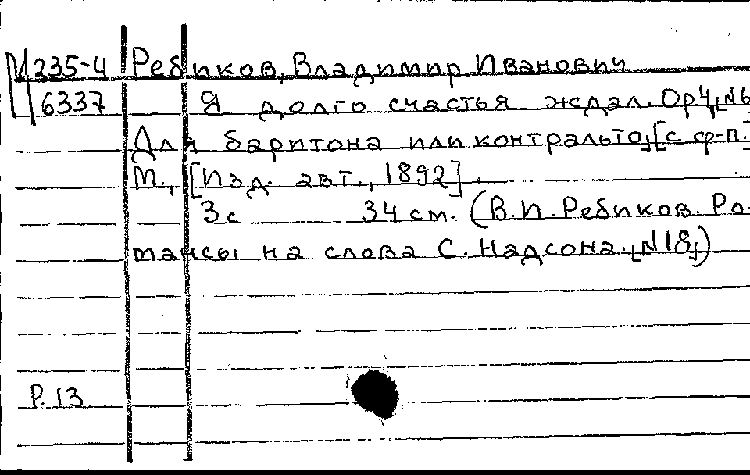 М 335-4 Ребиков, Владимир Иванович
6337 Я долго счастья ждал. Op4, №6
Для баритона или контральто, [с ф-п.]
М., [Изд. авт., 1892].
3с 34 см. (В.И. Ребиков. Ро-
мансы на слова С. Надсона. №18)
Р. 13